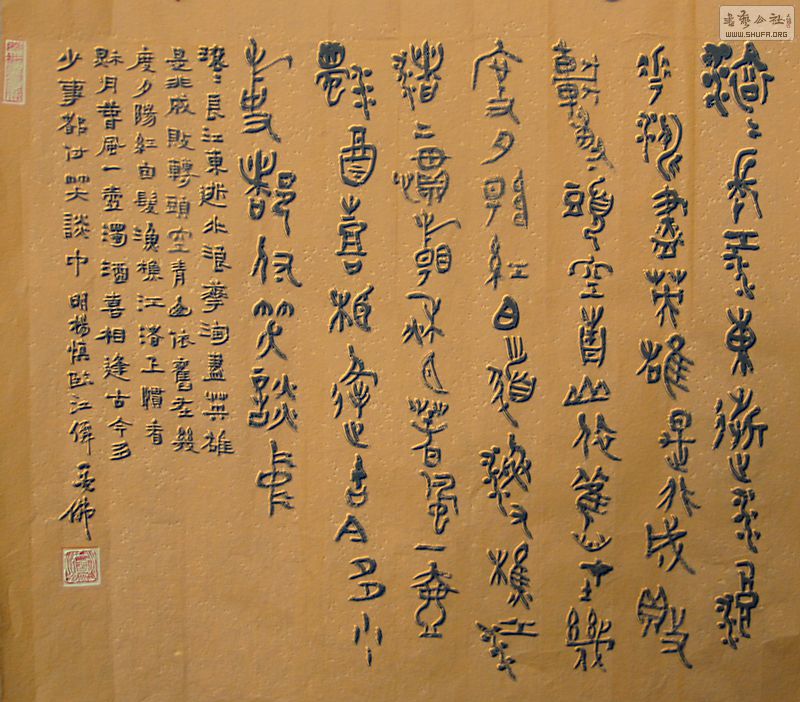 書藝公社
WWW.SHUFA.ORG
滾〻長江東逝水浪
華淘盡英雄是非成敗
轉頭空青山依舊在幾
度夕陽紅白髮漁樵江
渚上慣看秋月春風一壺
濁酒喜相逢古今多少
事都付笑談中
滾〻長江東逝水浪華淘盡英雄
是非成敗轉頭空青山依舊在幾
度夕陽紅白髮漁樵江渚上慣看
秋月春風一壺濁酒喜相逢古今多
少事都付笑談中 明楊慎臨江僊 佛